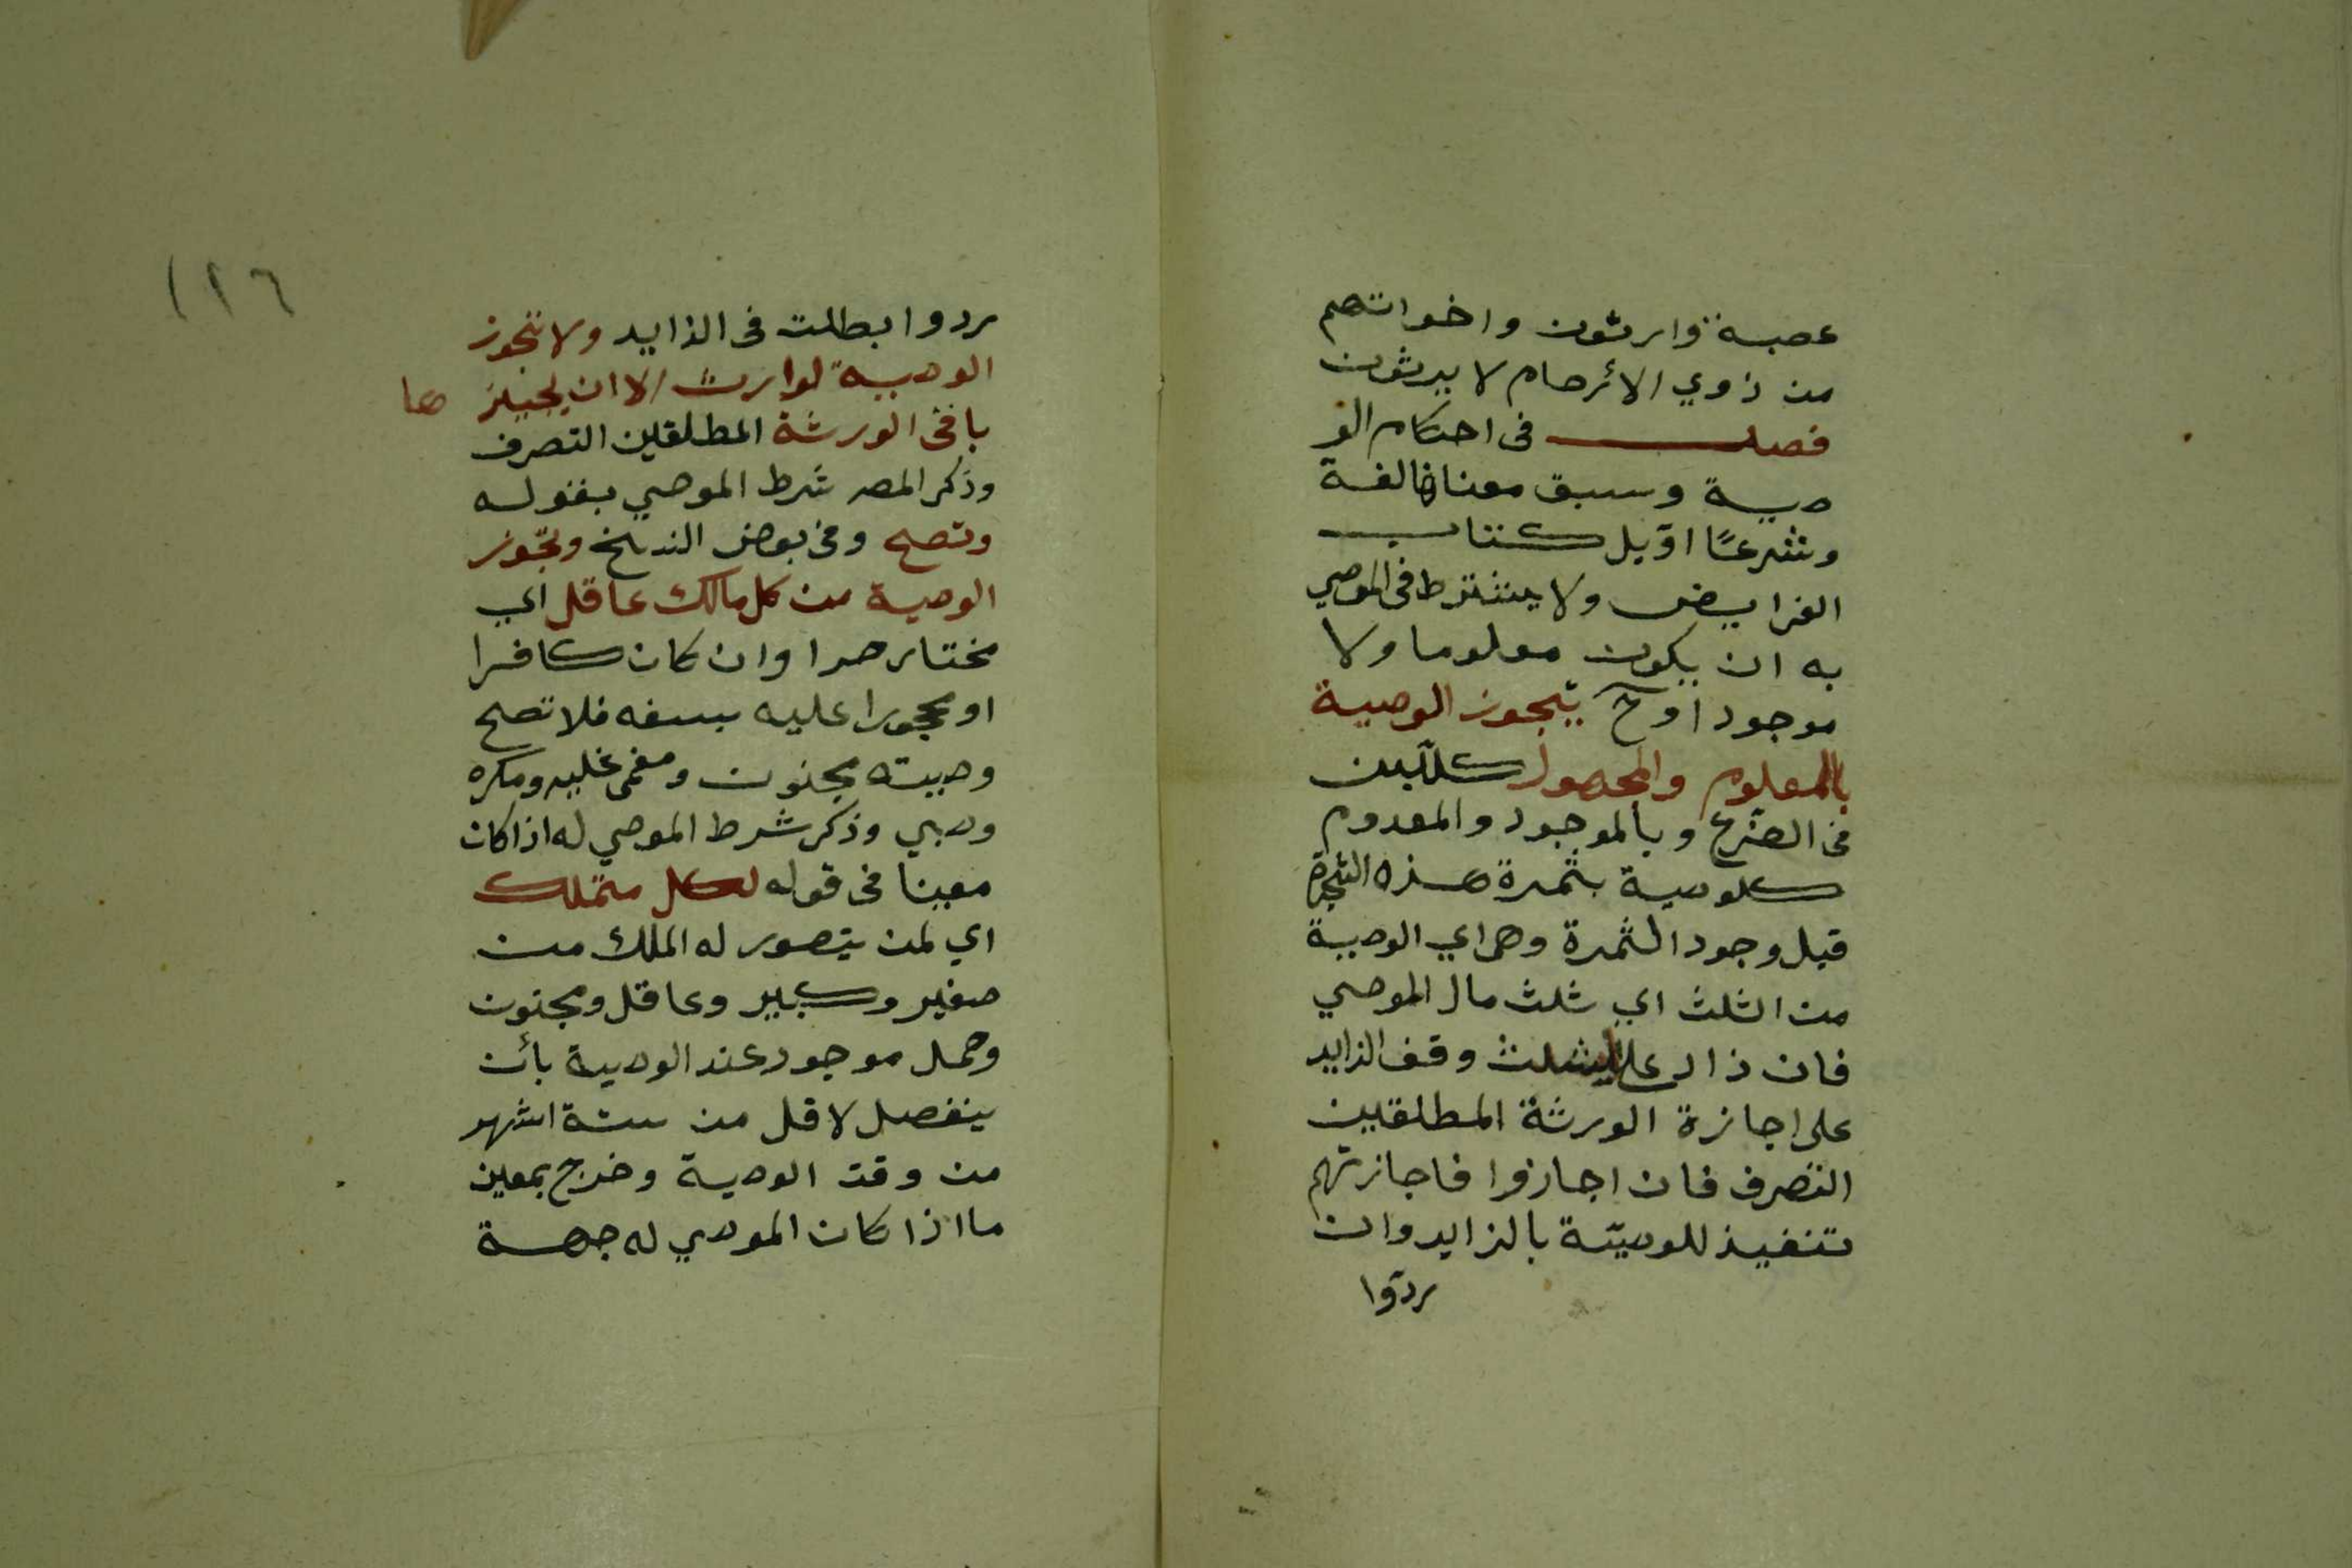 عصبة وارثون واخواتهم
من ذوي الأرحام لا يرثون
فصل في احكام الو
صية وسبق معناها لغة
وشرعًا اوّيل كتاب
الفرايض ولا يشترط في الموصي
به ان يكون معلوما ولا
موجودا وح يتجوز الوصية
بالمعلوم والمجهول كللّبن
في الضّرع وبالموجود والمعدوم
كلوصية بثمرة هذه الشجرة
قبل وجود الثمرة وهي اي الوصية
من الثلث اي ثلث مال الموصي
فان زاد على الثلث وقف الزايد
على اجازة الورثة المطلقين
التصرف فان اجازوا فاجازتهم
تنفيذ للوصيّة بالزايد وان
ردّوا
١٢٦
ردوا بطلت في الزايد ولا تجوز
الوصية لوارث الا ان يجيزها
باقي الورثة المطلقين التصرف
وذكر المصـ شرط الموصي بقوله
وتصح وفي بعض النسخ وتجّوز
الوصية من كل مالك عاقل اي
مختار حرا وان كان كافرا
او محجورا عليه بسفه فلا تصح
وصيته مجنون ومغمى عليه ومكره
وصبي وذكر شرط الموصي له اذا كان
معينا في قوله لكل متملك
اي لمن يتصور له الملك من
صغير وكبير وعاقل ومجنون
وحمل موجود عند الوصية بأن
ينفصل لاقل من ستة اشهر
من وقت الوصية وخرج بمعين
ما اذا كان الموصي له جهة